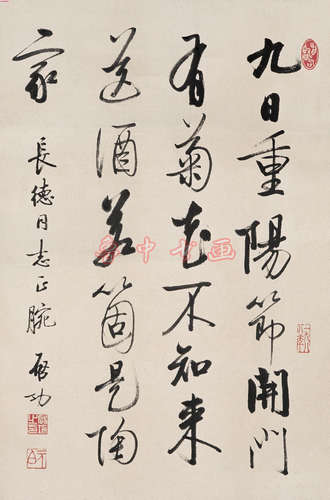 九日重陽節開門
有菊花不知来
送酒若箇是陶
家
長德同志正腕 啓功